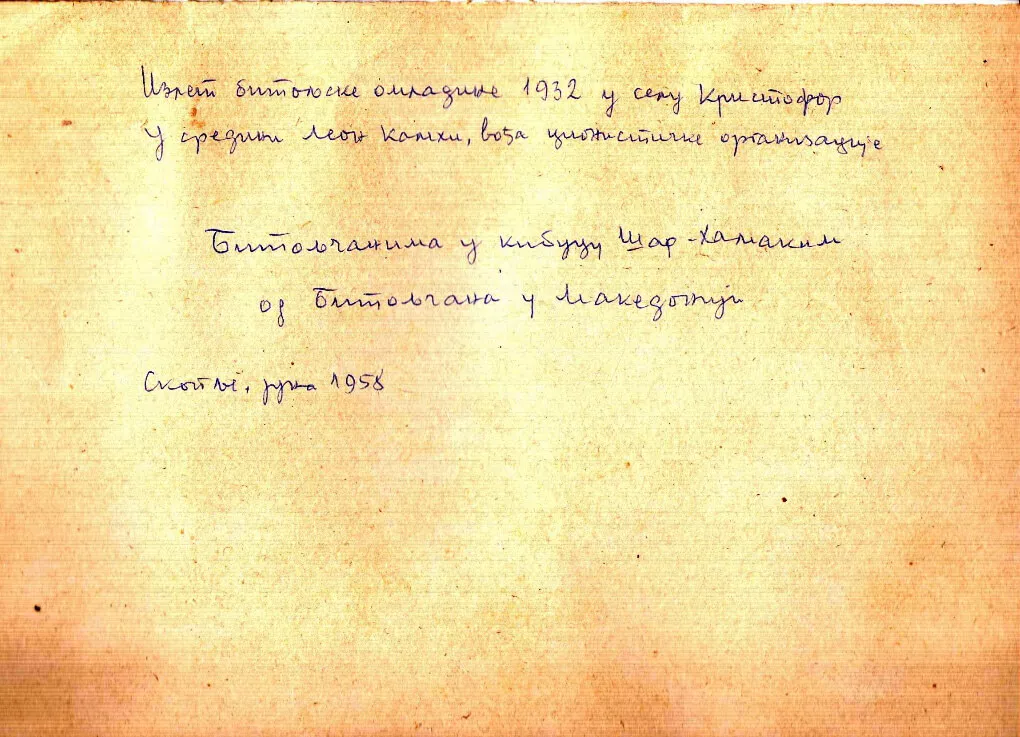 Излет битољске омладине 1932 у селу Кристофор
У средини Леон Камхи, вођа ционистичке организације
Битољчанима у кибуцу Шар-Хамаким
од Битољчана у Македонији
Скопље, јуна 1958